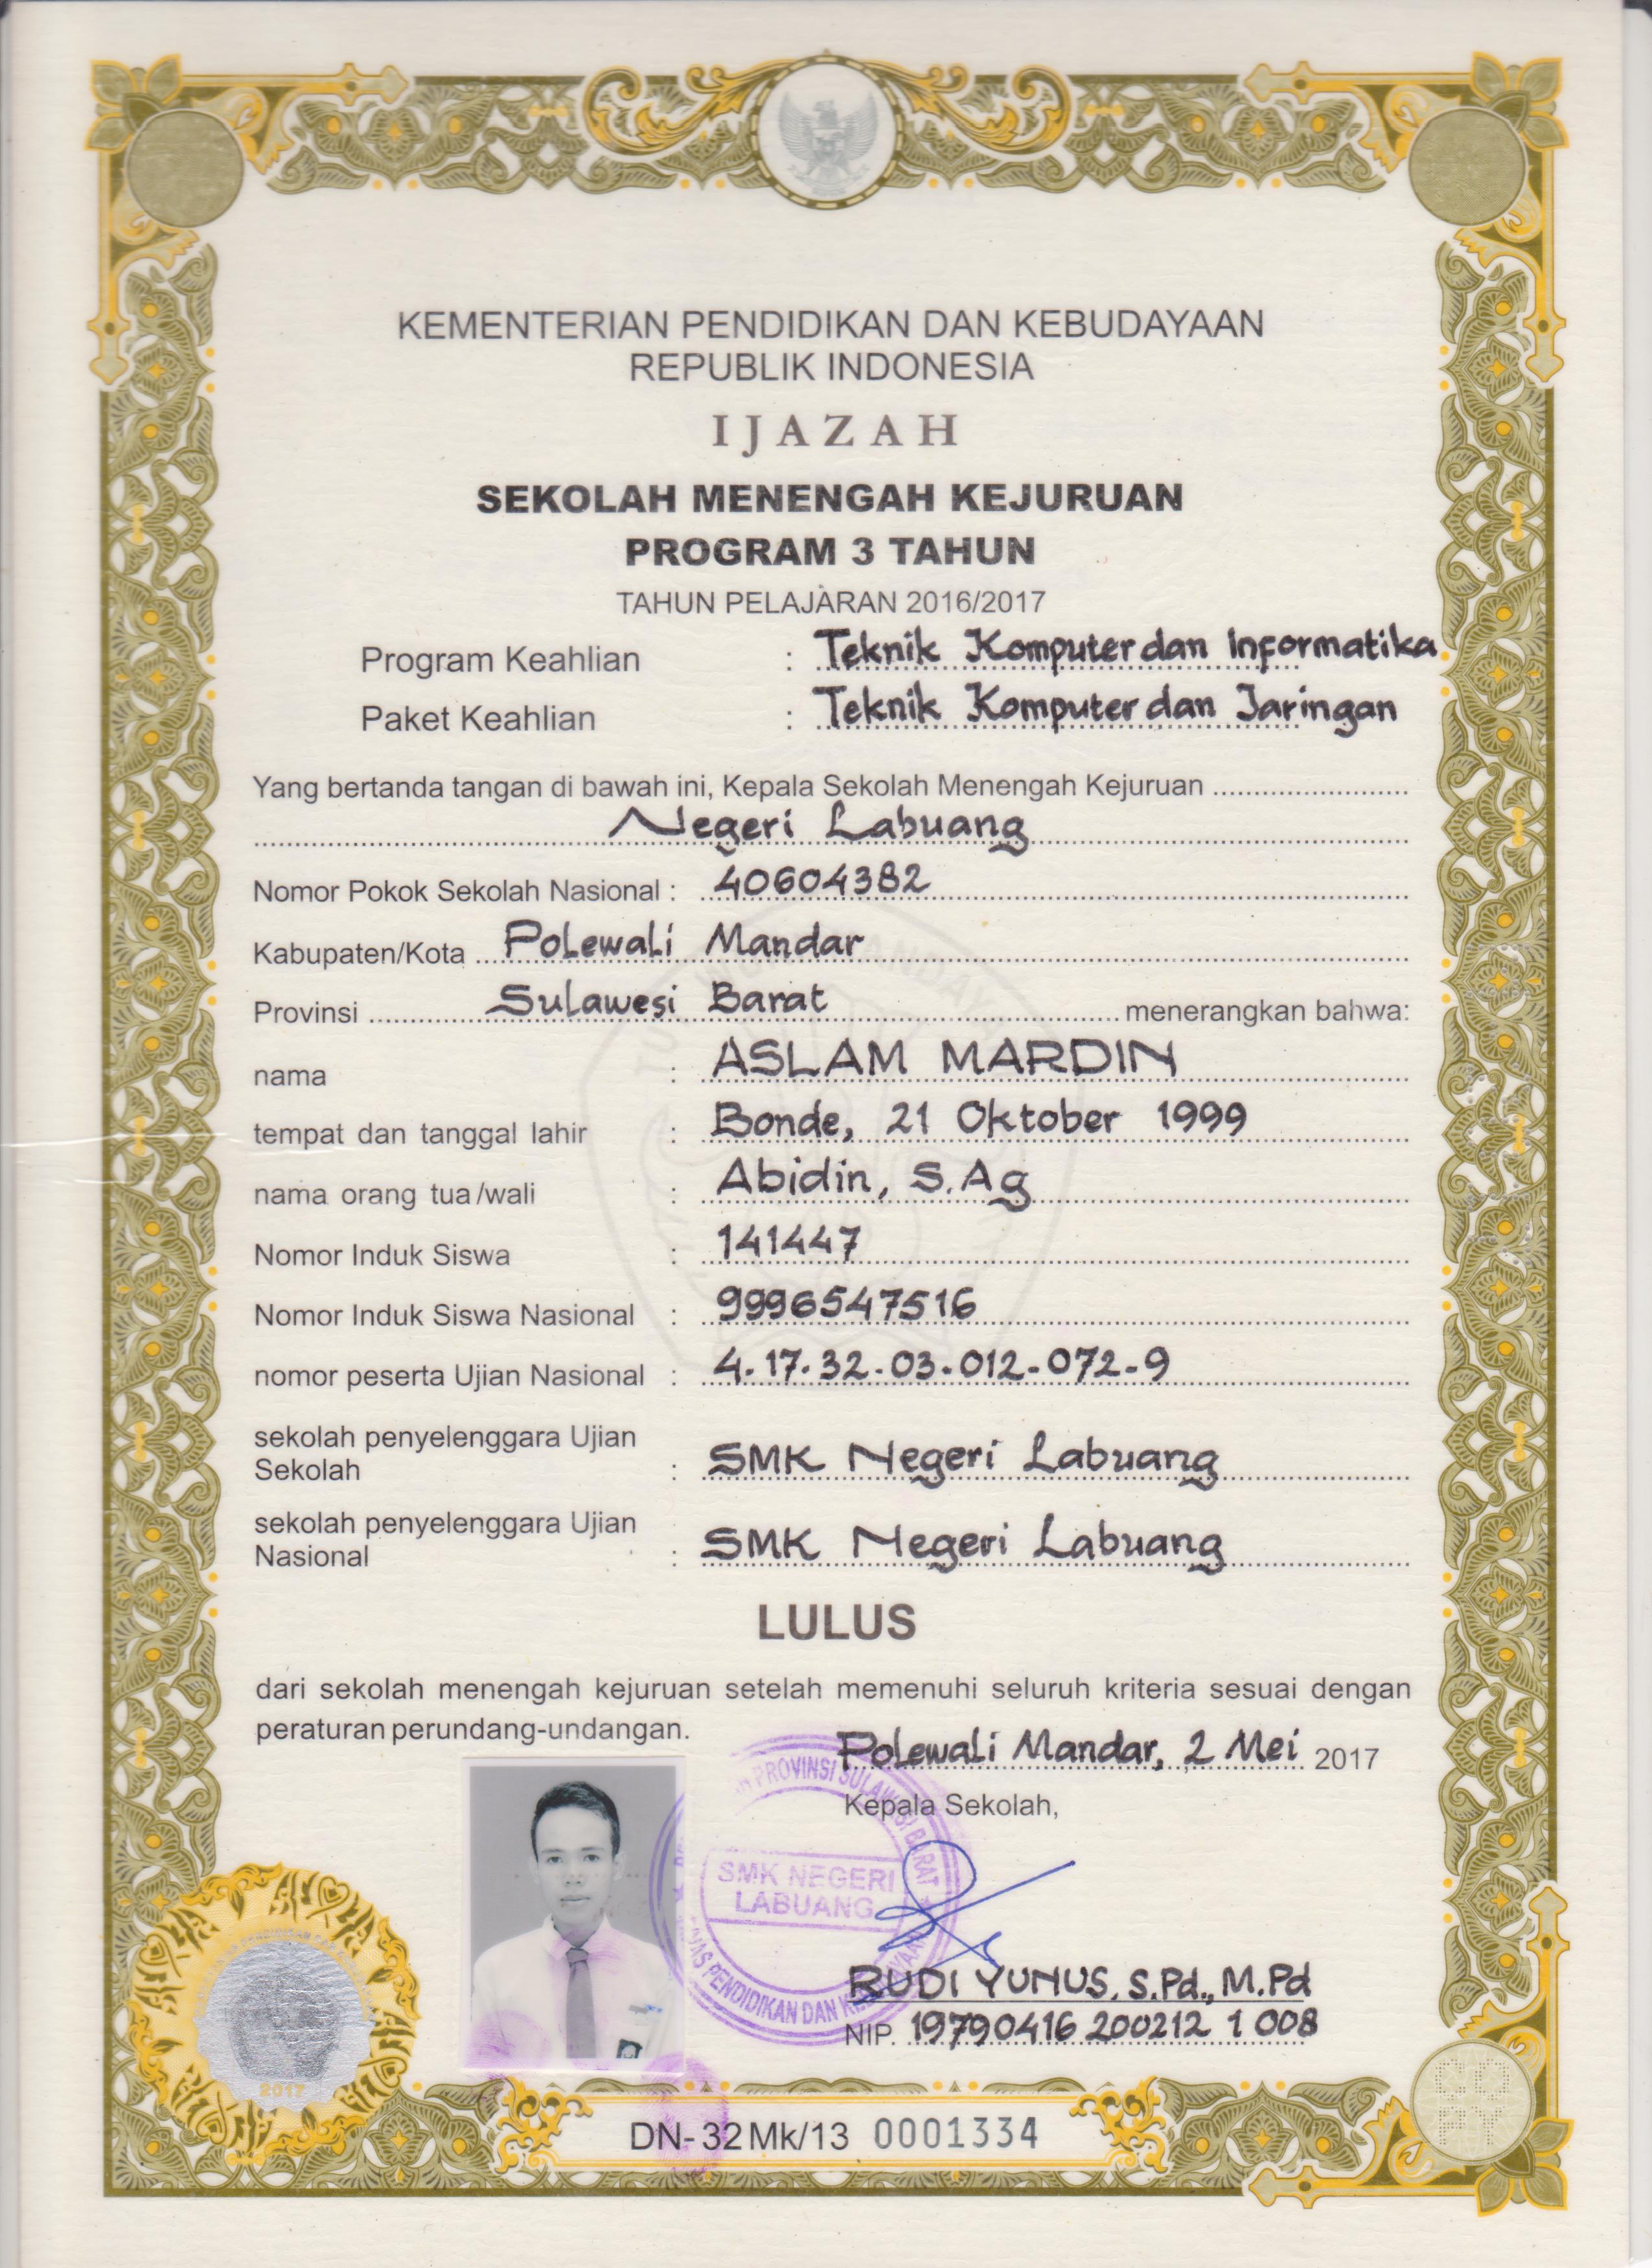 KEMENTERIAN PENDIDIKAN DAN KEBUDAYAAN
REPUBLIK INDONESIA
IJAZAH
SEKOLAH MENENGAH KEJURUAN
PROGRAM 3 TAHUN
TAHUN PELAJARAN 2016/2017
Program Keahlian : Teknik Komputer dan Informatika
Paket Keahlian : Teknik Komputer dan Jaringan
Yang bertanda tangan di bawah ini, Kepala Sekolah Menengah Kejuruan
Negeri Labuang
Nomor Pokok Sekolah Nasional : 40604382
Kabupaten/Kota Polewali Mandar
Provinsi Sulawesi Barat menerangkan bahwa:
nama : ASLAM MARDIN
tempat dan tanggal lahir : Bonde, 21 Oktober 1999
nama orang tua/wali : Abidin, S.Ag
Nomor Induk Siswa : 141447
Nomor Induk Siswa Nasional : 9996547516
nomor peserta Ujian Nasional : 4.17.32-03-012-072-9
sekolah penyelenggara Ujian
Sekolah : SMK Negeri Labuang
sekolah penyelenggara Ujian
Nasional : SMK Negeri Labuang
LULUS
dari sekolah menengah kejuruan setelah memenuhi seluruh kriteria sesuai dengan
peraturan perundang-undangan.
Polewali Mandar, 2 Mei 2017
Kepala Sekolah,
PROVINSI SULAWESI BARAT
SMK NEGERI
LABUANG
PENDIDIKAN DAN
RUDI YUNUS, S.Pd., M.Pd
NIP. 19790416 200212 1 008
2017
COPY
DN-32 Mk/13 0001334